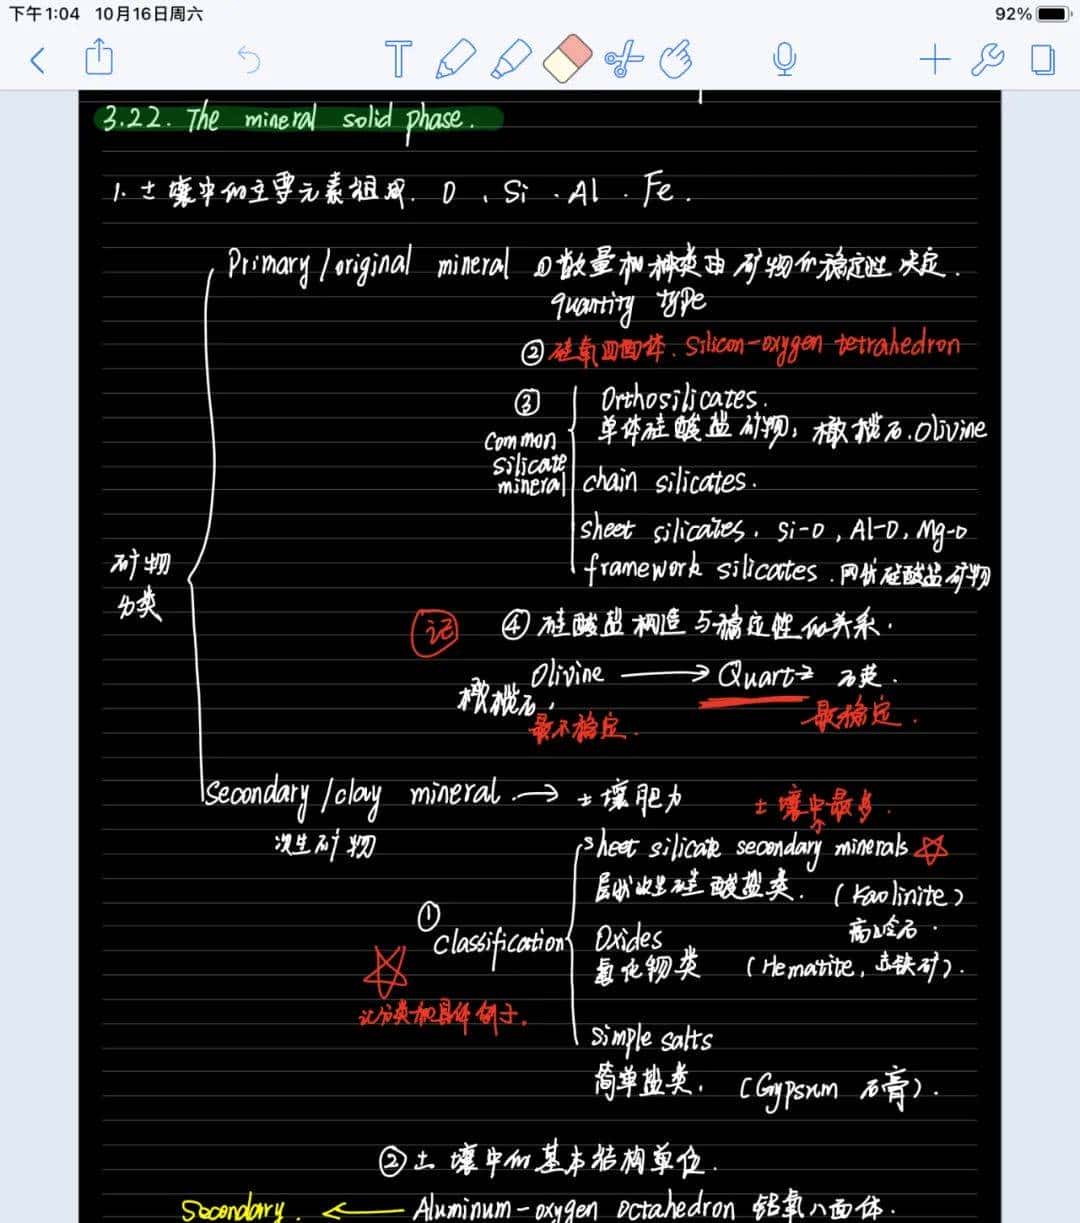 下午1:04 10月16日周六
92%
3.22. The mineral solid phase.
1. 土壤中的主要元素组成. O、Si、Al、Fe.
Primary/original mineral ①数量和种类由矿物的稳定性决定.
quantity type
②硅氧四面体. Silicon-oxygen tetrahedron
③
Common
silicate
mineral
Orthosilicates.
单体硅酸盐矿物: 橄榄石. Olivine
chain silicates.
sheet silicates. Si-O, Al-O, Mg-O
framework silicates. 网状硅酸盐矿物
矿物
分类
记
④硅酸盐构造与稳定性的关系.
Olivine → Quartz 石英.
橄榄石,
最不稳定.
最稳定.
Secondary/clay mineral. → 土壤肥力
次生矿物
土壤中最多.
sheet silicate secondary minerals
层状次生硅酸盐类. (Kaolinite)
高岭石.
①
Classification
Oxides
氧化物类 (Hematite, 赤铁矿).
记分类和具体例子.
simple salts
简单盐类. (Gypsum 石膏).
②土壤中的基本结构单位.
Secondary. ← Aluminum-oxygen octahedron 铝氧八面体.